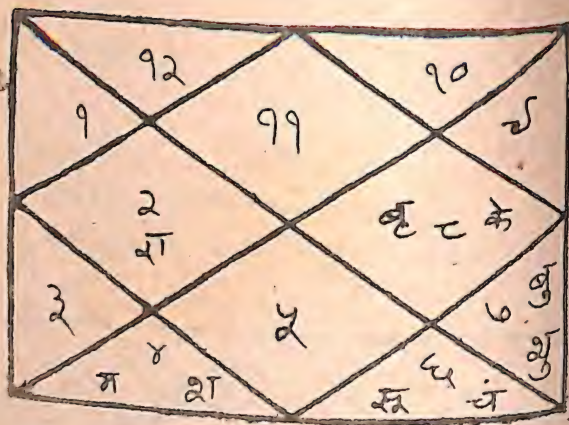 १२
१०
१
११
९
२
रा
बृ ८ के
३
५
७ बु
शु
४
म श
६
सू चं